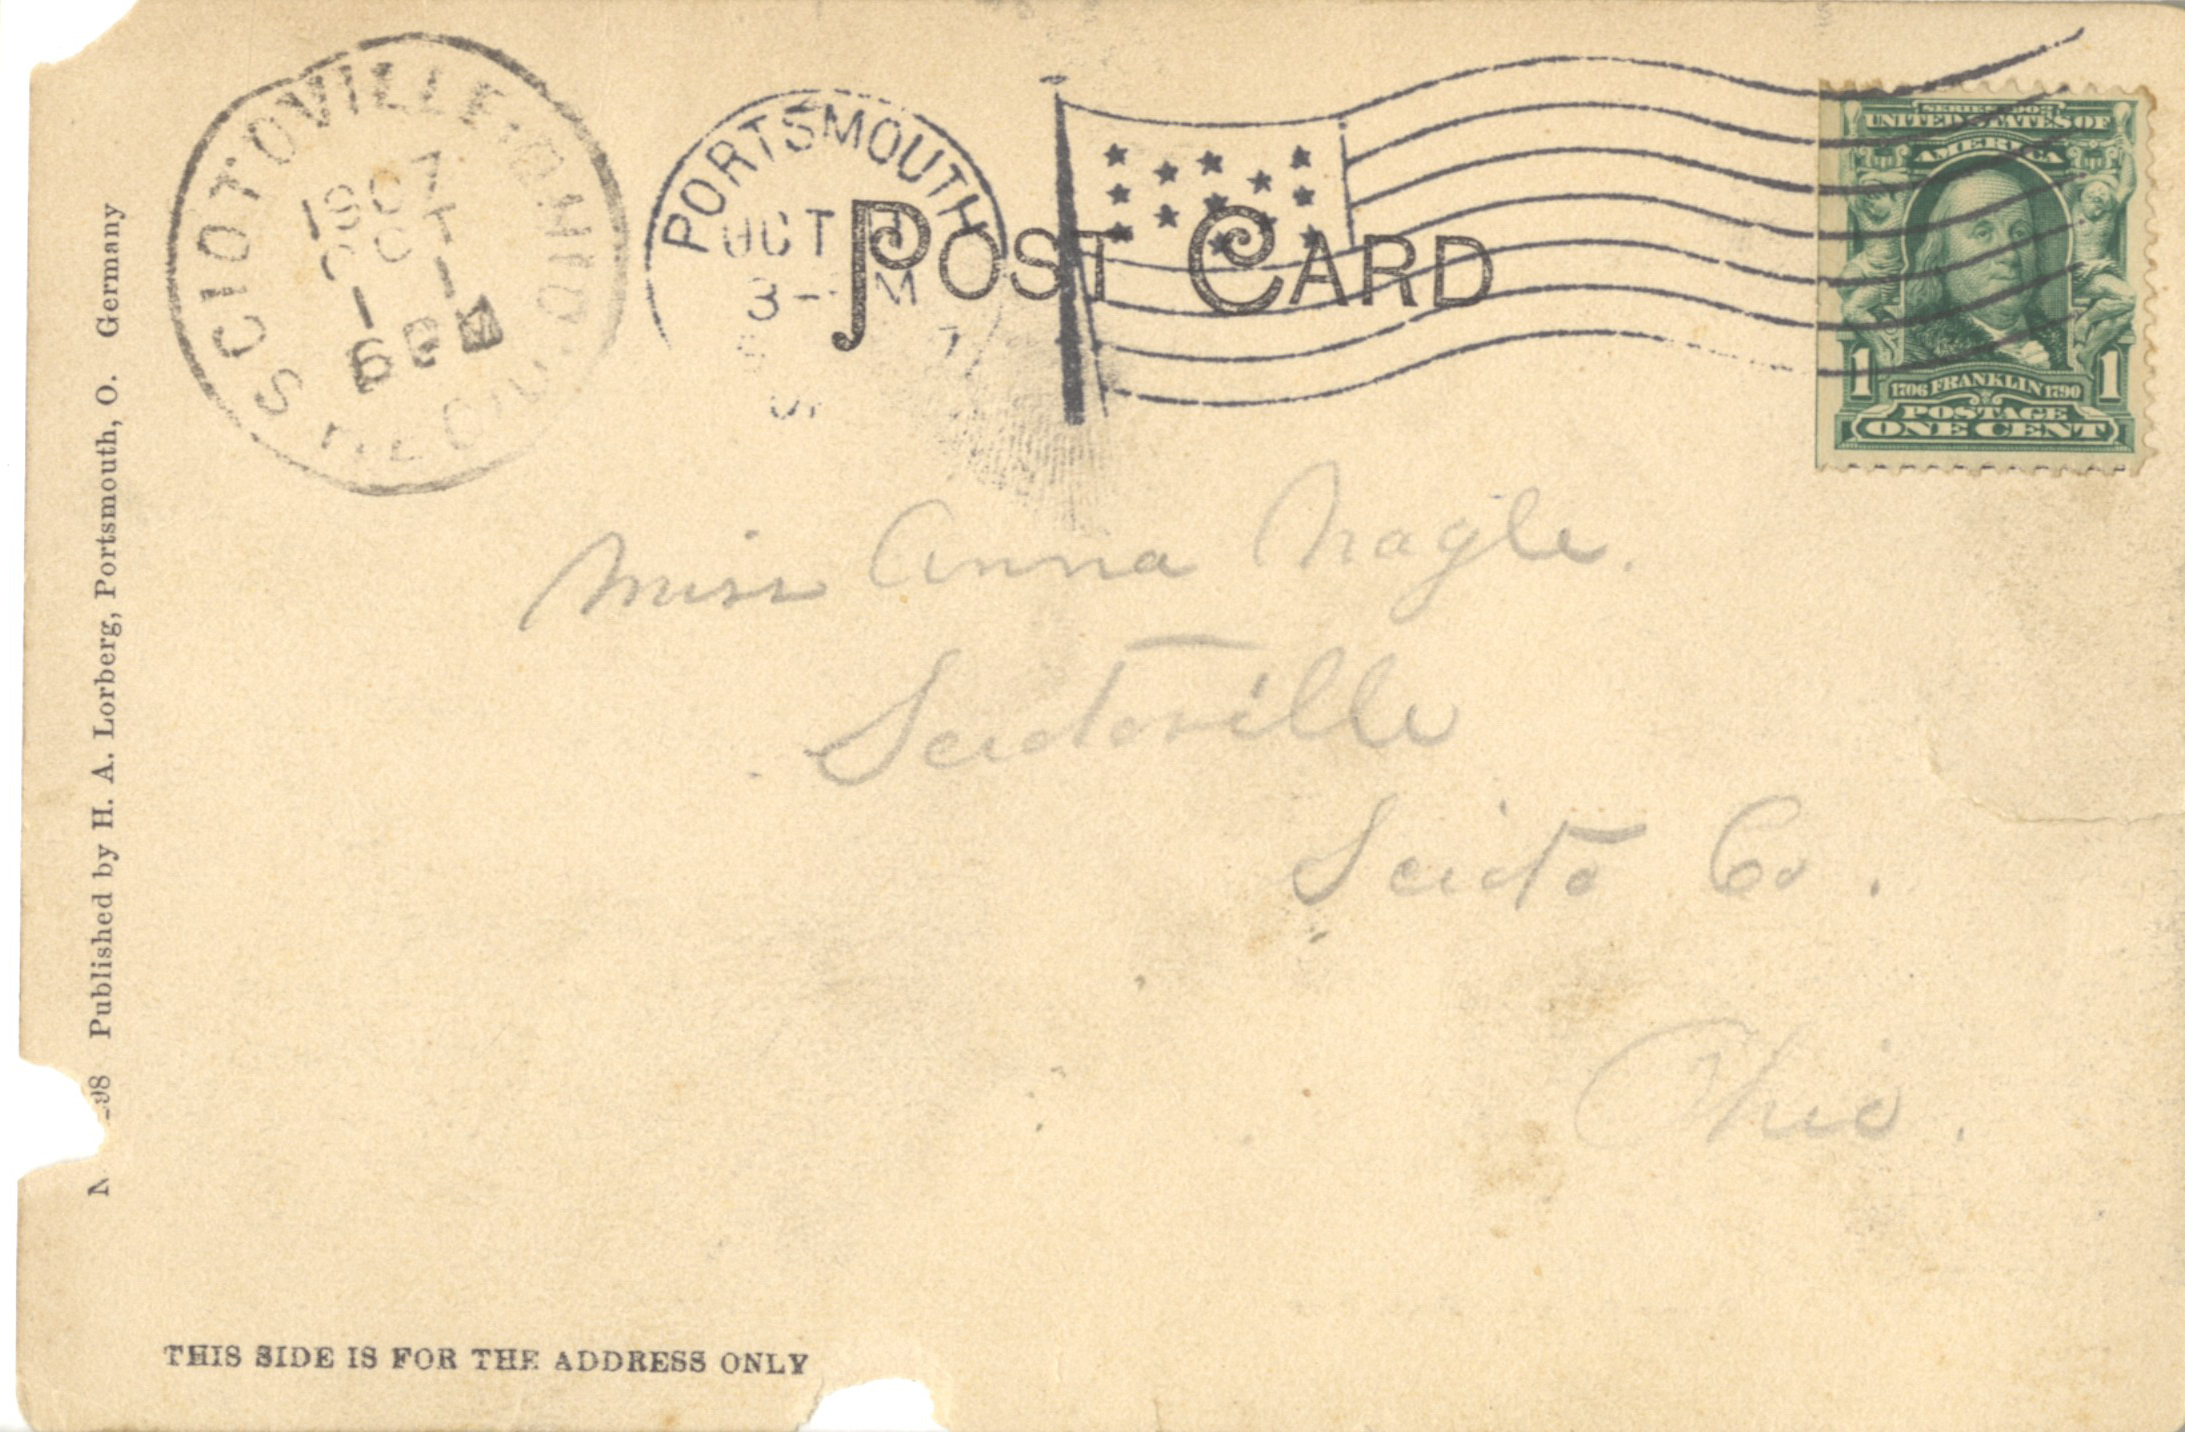 SCIOTOVILLE. OHIO.
OCT
1
6 PM
PORTSMOUTH
OCT
3-
M
POST CARD
SERIES 1902
UNITED STATES OF
AMERICA
1 1706 FRANKLIN 1790 1
POSTAGE
ONE CENT
Miss Anna Nagle.
Sciotoville
Scioto Co.
Ohio.
98 Published by H. A. Lorberg, Portsmouth, O. Germany
THIS SIDE IS FOR THE ADDRESS ONLY